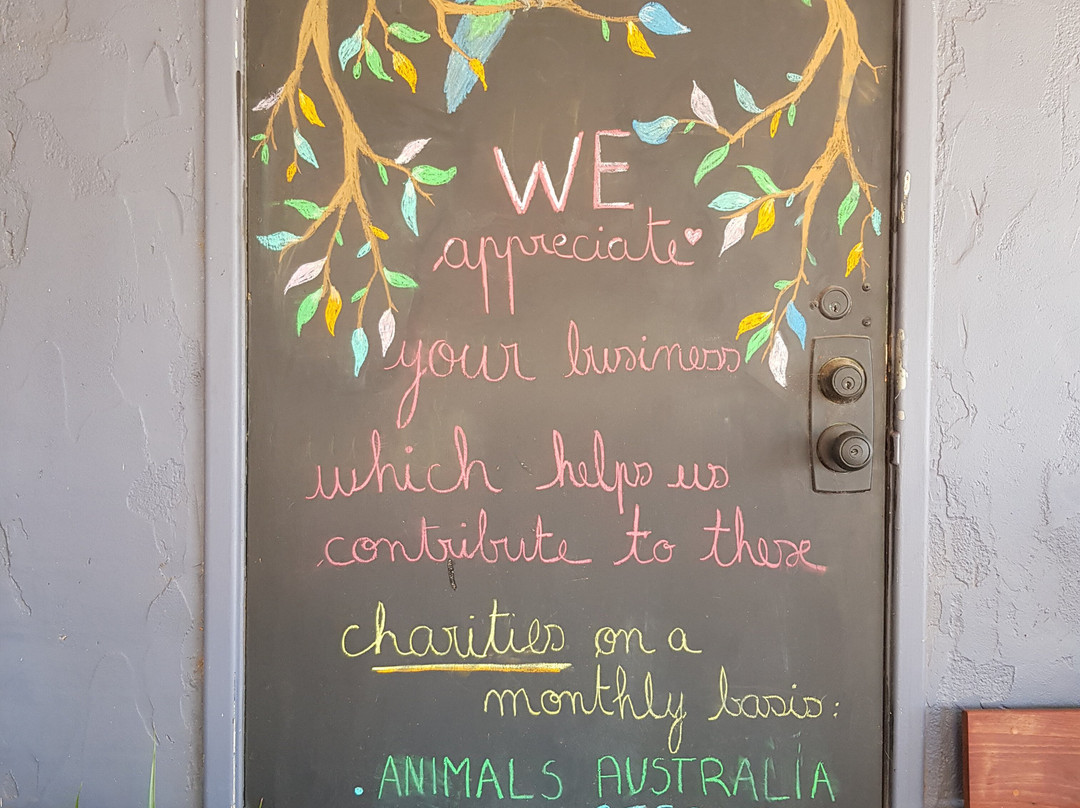 WE
appreciate
your business
which helps us
contribute to these
charities on a
monthly basis:
. ANIMALS AUSTRALIA